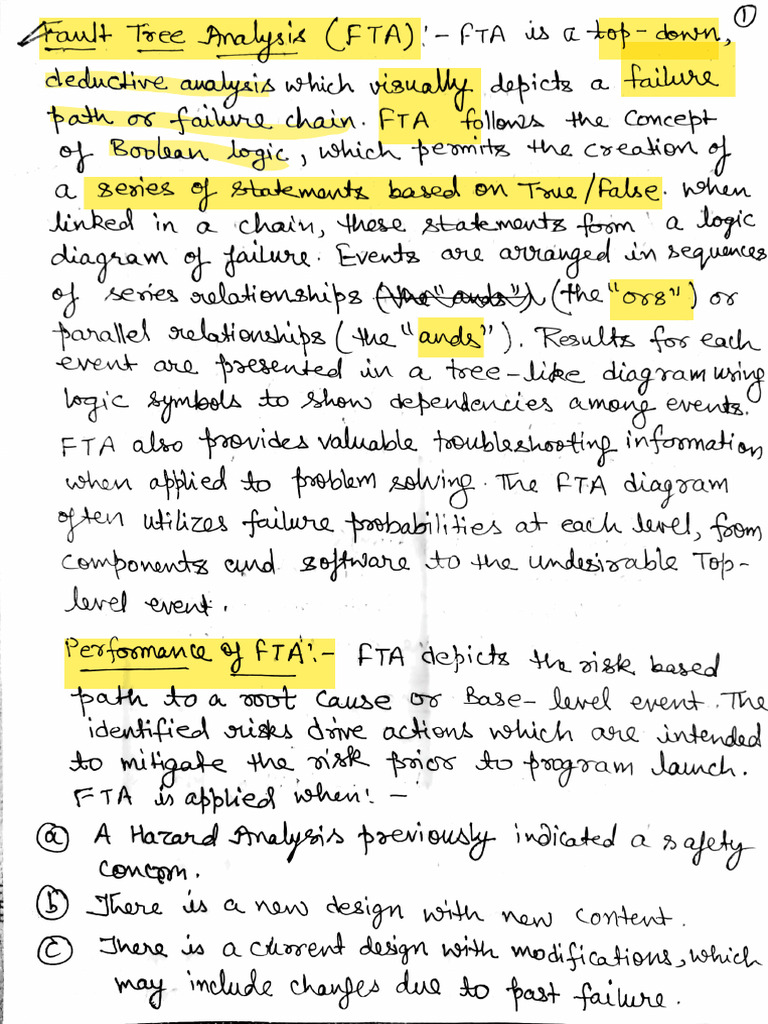 ①
Fault Tree Analysis (FTA):- FTA is a top-down,
deductive analysis which visually depicts a failure
path or failure chain. FTA follows the concept
of Boolean logic, which permits the creation of
a series of statements based on True/False. When
linked in a chain, these statements form a logic
diagram of failure. Events are arranged in sequences
of series relationships (the "ands") (the "ors") or
parallel relationships (the "ands"). Results for each
event are presented in a tree-like diagram using
logic symbols to show dependencies among events.
FTA also provides valuable troubleshooting information
when applied to problem solving. The FTA diagram
often utilizes failure probabilities at each level, from
components and software to the undesirable Top-
level event.
Performance of FTA:- FTA depicts the risk based
path to a root cause or Base-level event. The
identified risks drive actions which are intended
to mitigate the risk prior to program launch.
FTA is applied when:-
ⓐ A Hazard Analysis previously indicated a safety
concern.
ⓑ There is a new design with new content.
ⓒ There is a current design with modifications, which
may include changes due to past failure.